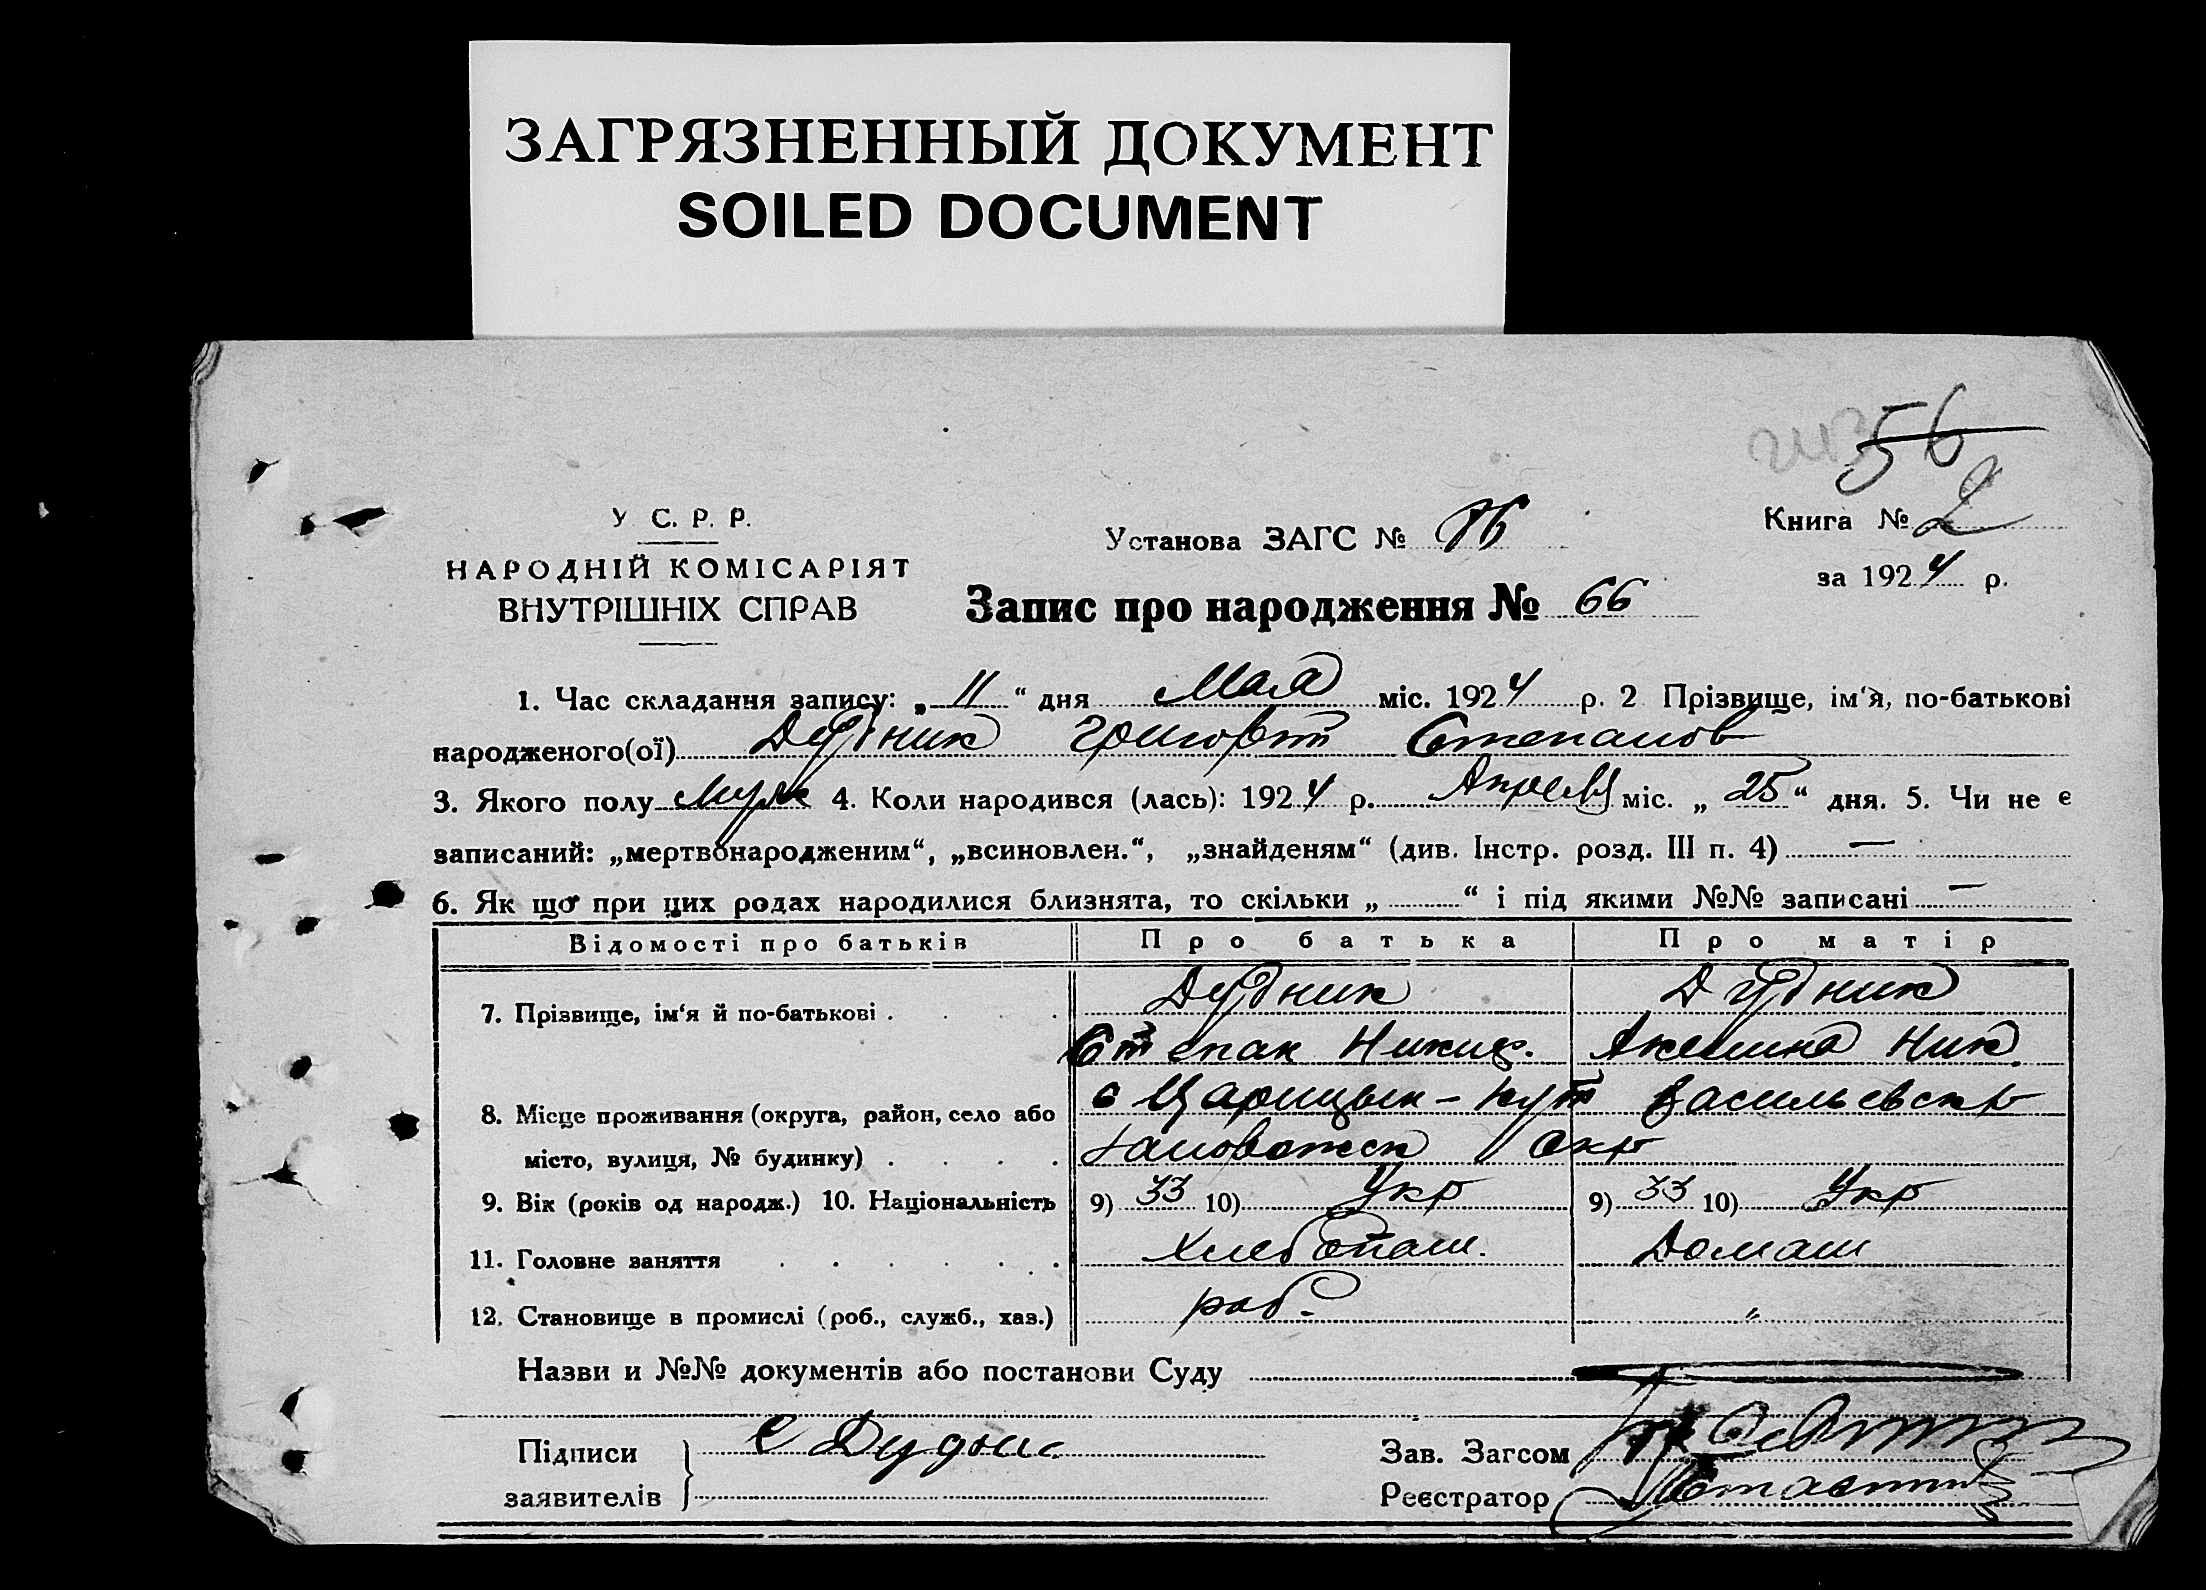 ЗАГРЯЗНЕННЫЙ ДОКУМЕНТ
SOILED DOCUMENT
56
У С. Р. Р.
НАРОДНІЙ КОМІСАРІЯТ
ВНУТРІШНІХ СПРАВ
Установа ЗАГС №
Книга № 2
за 1924 р.
Запис про народження № 66
1. Час складання запису: „11“ дня Мая міс. 1924 р. 2 Прізвище, ім‘я, по-батькові
народженого(ої) Дудник Григорій Степанов
3. Якого полу муж 4. Коли народився (лась): 1924 р. Апреля міс. „25“ дня. 5. Чи не є
записаний: „мертвонародженим“, „всиновлен.“, „знайденям“ (див. Інстр. розд. III п. 4) —
6. Як що при цих родах народилися близнята, то скільки „ “ і під якими №№ записані —
Відомості про батьків Про батька Про матір
7. Прізвище, ім‘я й по-батькові . Дудник Дудник
Степан Никиф. Акелина Ник.
8. Місце проживання (округа, район, село або с Царицын-Кут Васильевск р
місто, вулиця, № будинку) . окр
9. Вік (років од народж.) 10. Національність 9) 33 10) Укр 9) 33 10) Укр
11. Головне заняття Хлебопаш. Домаш
12. Становище в промислі (роб., служб., хаз.) раб. „
Назви и №№ документів або постанови Суду
Підписи С Дудник
заявителів
Зав. Загсом
Реєстратор